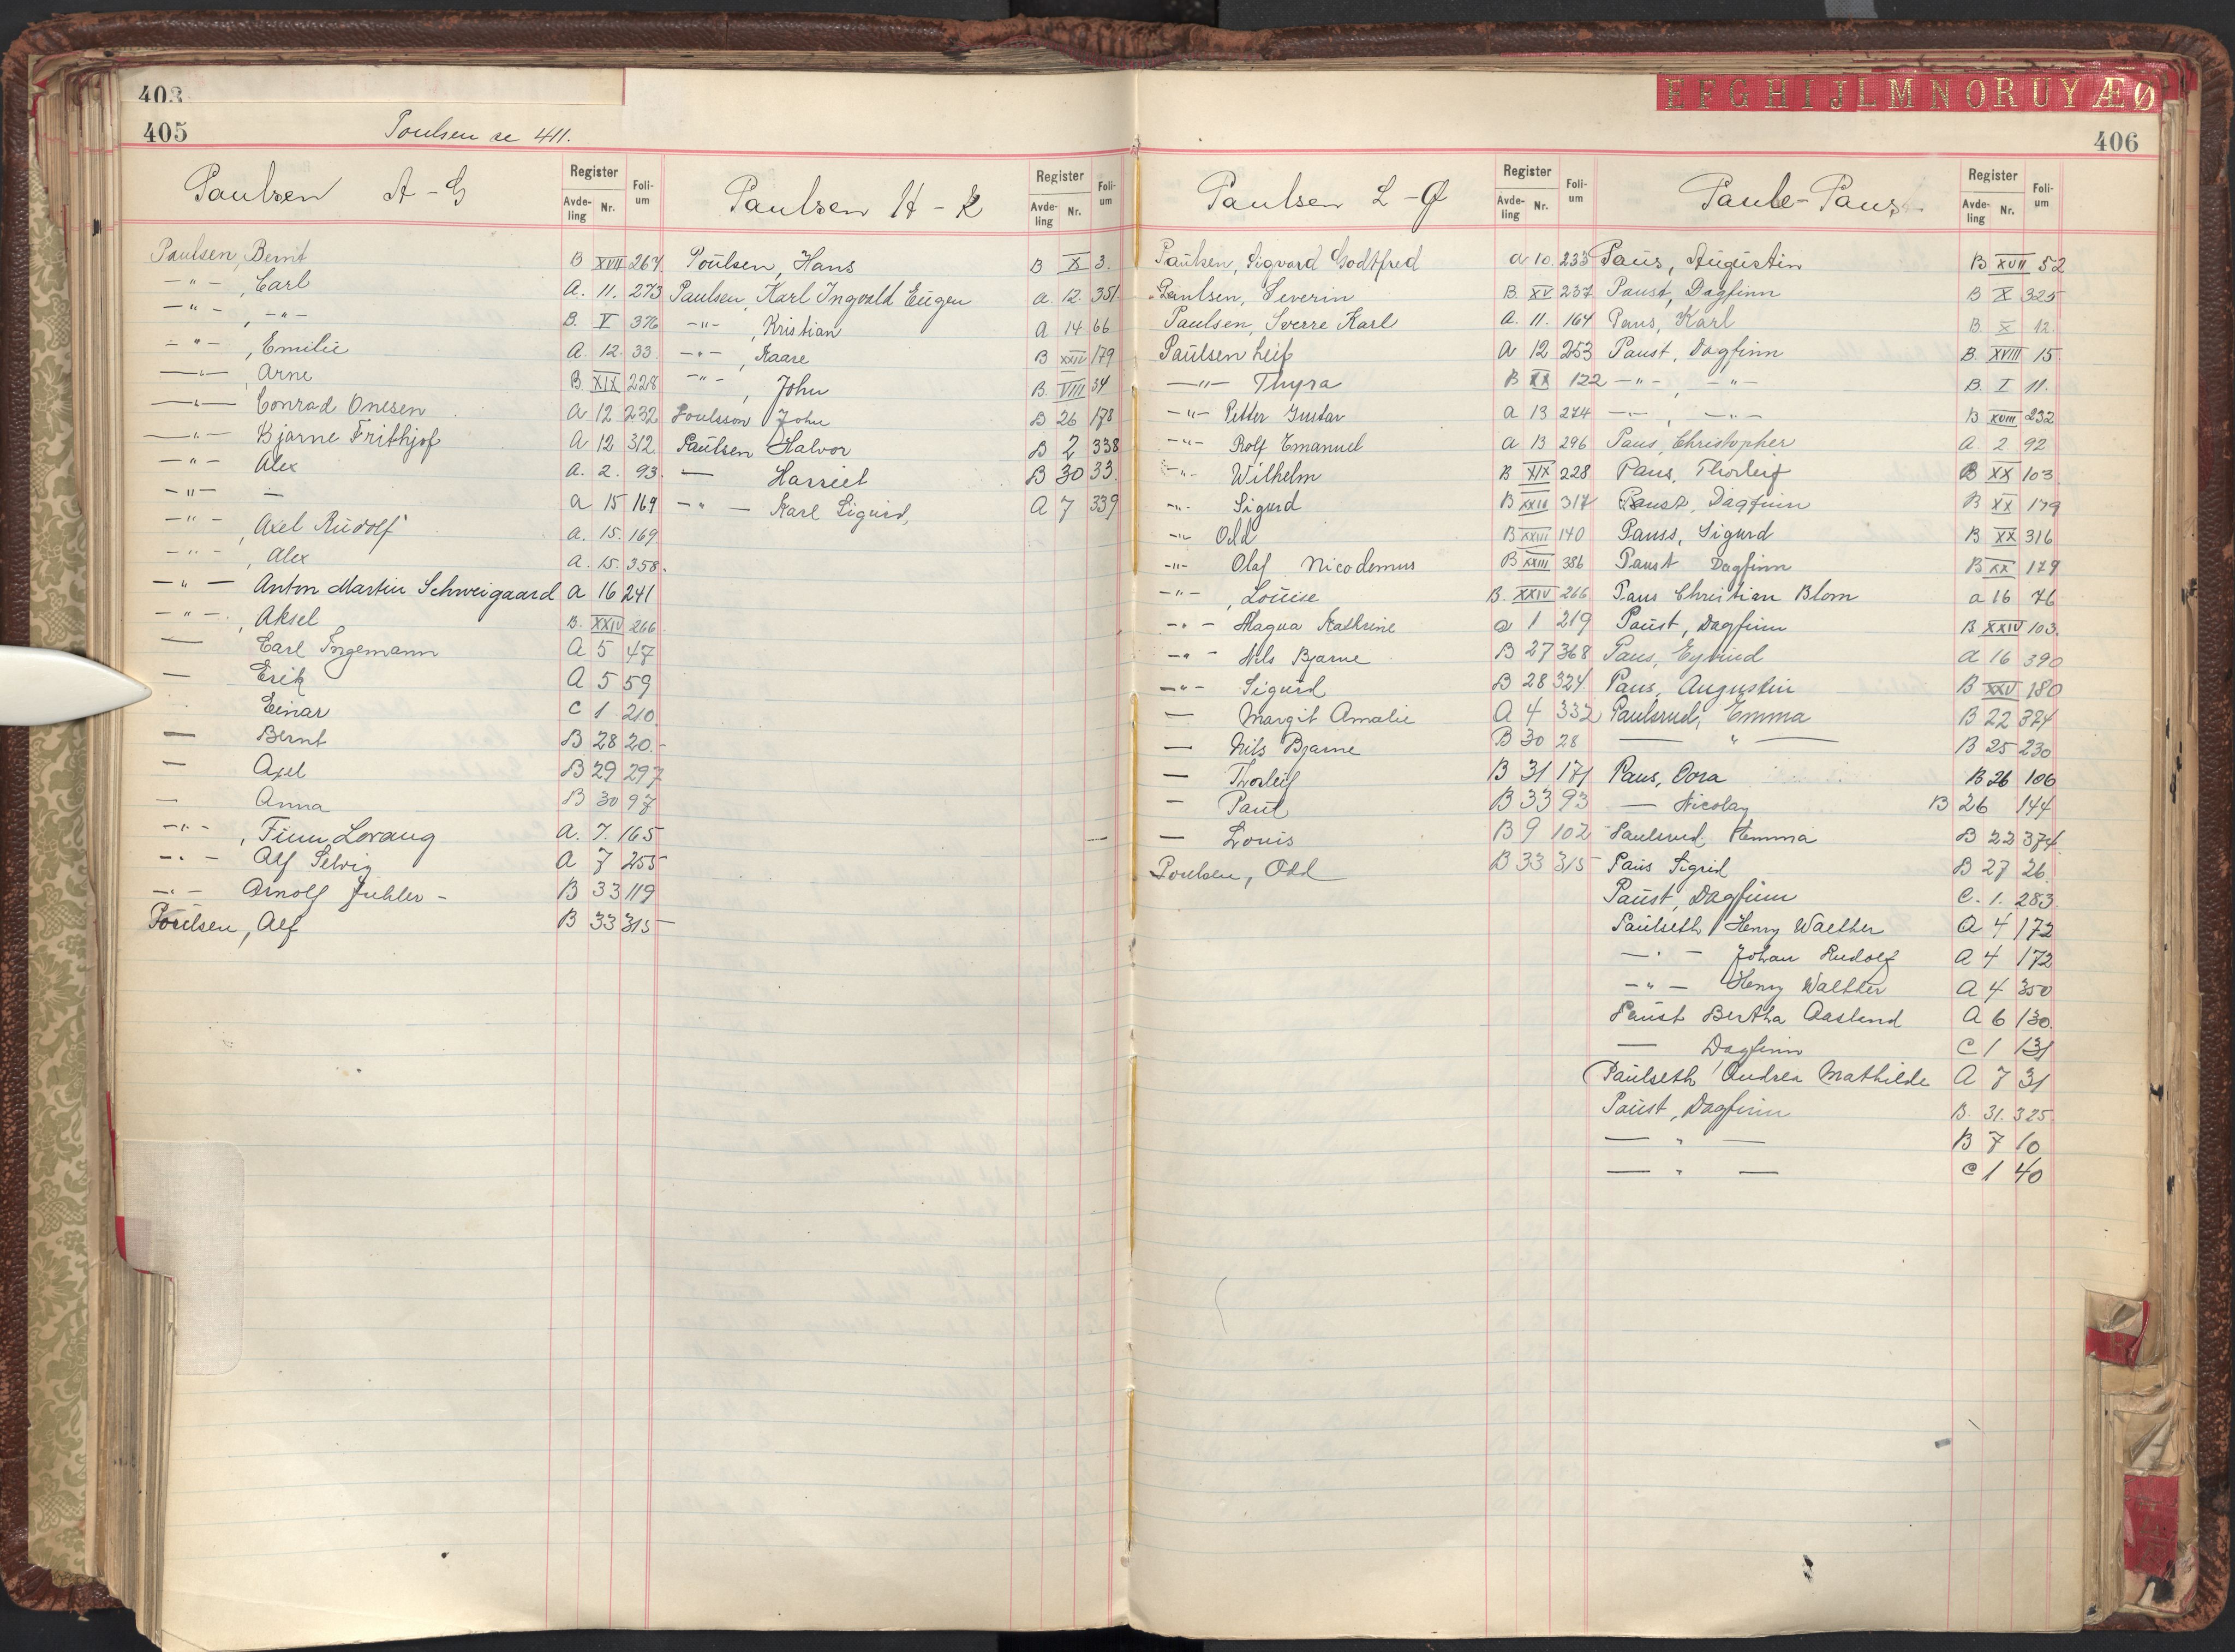 403
405
Poulsen se 411.
Paulsen A - G
Register
Avde-
ling
Nr.
Foli-
um
Paulsen, Bernt B XVII 264
-"- , Carl A. 11. 273
-"- , -"- B. V 376
-"- , Emilie A. 12. 33.
-"- , Arne B. XIX 228
-"- Conrad Onesen A 12 232
-"- Bjarne Frithjof A 12 312
-"- Alex A. 2. 93.
-"- — A 15 169
-"- , Axel Rudolf A. 15. 169
-"- , Alex A. 15. 358.
-"- Anton Martin Schweigaard A 16 241
-"- , Aksel B. XXIV 266
— Carl Ingemann A 5 47
— Erik A 5 59
Einar C 1 210
— Bernt B 28 20.-
— Axel B 29 297
— Anna B 30 97
-"- , Finn Lorang A. 7. 165
-"- Alf Selvig A 7 255
-"- Arnolf Juhler - B 33 119
Poulsen, Alf B 33 315
Paulsen H - K
Register
Avde-
ling
Nr.
Foli-
um
Poulsen, Hans B X 3.
Paulsen, Karl Ingvald Eugen A. 12. 351
-"- , Kristian A 14 66
-"- , Kaare B XXIV 179
-"- , John B. VIII 34
Poulsson John B 26 178
Paulsen Halvor B 2 338
— Harriet B 30 33
-"- Karl Sigurd, A 7 339
E F G H I J L M N O R U Y Æ Ø
406
Paulsen L - Ø
Register
Avde-
ling
Nr.
Foli-
um
Paulsen, Sigvard Godtfred A 10. 233
Paulsen, Severin B. XV 237
Paulsen, Sverre Karl A. 11. 164
Paulsen Leif A 12 253
-"- Thyra B XX 122
-"- Petter Gustav A 13 274
-"- Rolf Emanuel A 13 296
-"- Wilhelm B XIX 228
-"- Sigurd B XXIV 317
-"- Odd B XXIII 140
-"- Olaf Nicodemus B XXIII 386
-"- , Louise B. XXIV 266
-"- Magna Kathrine A 1 219
-"- Nils Bjarne B 27 368
-"- Sigurd B 28 324
— Margit Amalie A 4 332
— Nils Bjarne B 30 28
— Thorleif B 31 171
— Paul B 33 93
— Louis B 9 102
Poulsen, Odd B 33 315
Paule - Paus
Register
Avde-
ling
Nr.
Foli-
um
Paus, Augustin B XVII 52
Paust, Dagfinn B X 325
Paus, Karl B. X 12.
Paust, Dagfinn B. XVIII 15.
-"- , -"- B. I 11.
-"- , -"- B XVIII 232
Paus, Christopher A 2 92
Paus, Thorleif B XX 103
Paust, Dagfinn B XX 179
Pauss, Sigurd B XX 316
Paust Dagfinn B XX 179
Paus Christian Blom A 16 76
Paust, Dagfinn B XXIV 103.
Paus, Eyvind A 16 390
Paus, Augustin B XXV 180
Paulsrud, Emma B 22 374
— " — B 25 230
Paus, Dora B 26 106
— Nicolay B 26 144
Paulsrud, Emma B 22 374
Paus Sigrid B 27 26.
Paust, Dagfinn C. 1. 283
Paulseth Henry Walther A 4 172
-"- Johan Rudolf A 4 172
-"- Henry Walther A 4 350
Paust Bertha Aaslund A 6 130
— Dagfinn C 1 131
Paulseth Andrea Mathilde A 7 31
Paust, Dagfinn B. 31. 325
— " — B 7 10
— " — C 1 40